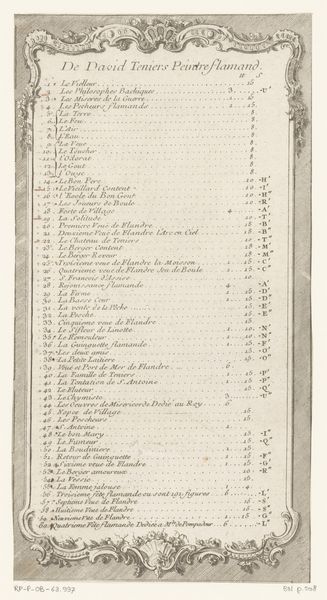 De David Teniers Peintre flamand.
tt S
1 Le Vielleur 15
2 Les Philosophes Bachiques 3 U'
3 Les Miseres de la Guerre 1 15
4 Les Pecheurs flamands 1 15
5 La Terre 8
6 Le Feu 8
7 l'Air 8
8 l'Eau 8
9 La Veue 8
10 Le Toucher 8
11 l'Odorat 8
12 Le Gout 8
13 l'Ouye 8
14 Le Bon Pere 10 H'
15 Le Vieillard Content 10 I'
16 l'Ecole du Bon Gout 10 H"
17 Les Joueurs de Boule 10 R'
18 Feste de Village 4 A'
19 La Solitude 10 T'
20 Premiere Vuë de Flandre 15 B'
21 Deuxieme Vuë de Flandre l'Arc en Ciel 15 B"
22 Le Chateau de Teniers 10 T"
23 Le Berger Content 15 M'
24 Le Berger Reveur 15 M"
25 Troisieme vuë de Flandre la Moisson 15 C'
26 Quatrieme vuë de Flandre Jeu de Boule 15 C"
27 S. Francois d'Assise 10
28 Rejouissance flamande 4 A"
29 La Ferme 1 15 D'
30 La Basse Cour 1 15 D"
31 La vente de la Pêche 15 E'
32 La Pesche 15 E"
33 Cinquieme vuë de Flandre 15
34 Le Sifleur de Linotte 1 10 N'
35 Le Remouleur 1 10 N"
36 La Guinguette flamande 1 15 F'
37 Les deux amis 15 O'
38 La Petite Laitiere 15 O"
39 Vuë et Port de Mer de Flandre 6
40 La Famille de Teniers 1 15 P'
41 La Tentation de S. Antoine 1 15 P"
42 Le Fluteur 15 Q'
43 Le Chymiste 3 U"
44 Les Oeuvres de Misericorde Dedié au Roy
45 Noces de Village 15
46 Les Pescheurs 15
47 S. Antoine 1
48 Le bon Mary 15 I"
49 Le Fumeur 15 Q"
50 La Boudiniere 1 15
51 Retour de Guinguette 1 15 F"
52 Sixieme vuë de Flandre 1 15 G'
53 Le Berger amoureux 15 R"
54 La Vessie 15
55 La Femme jalouse 1 4
56 Troisieme fête flamande ou sont 191 figures 6 L'
57 Septieme Vuë de Flandre 15 S'
58 Huitieme Vuë de Flandre 15 S"
59 Neuvieme Vuë de Flandre 1 15 G"
60 Quatrieme Fête flamande Dediée a Me. de Pompadour 6 L"
RP-P-OB-63.997
BN p. 508